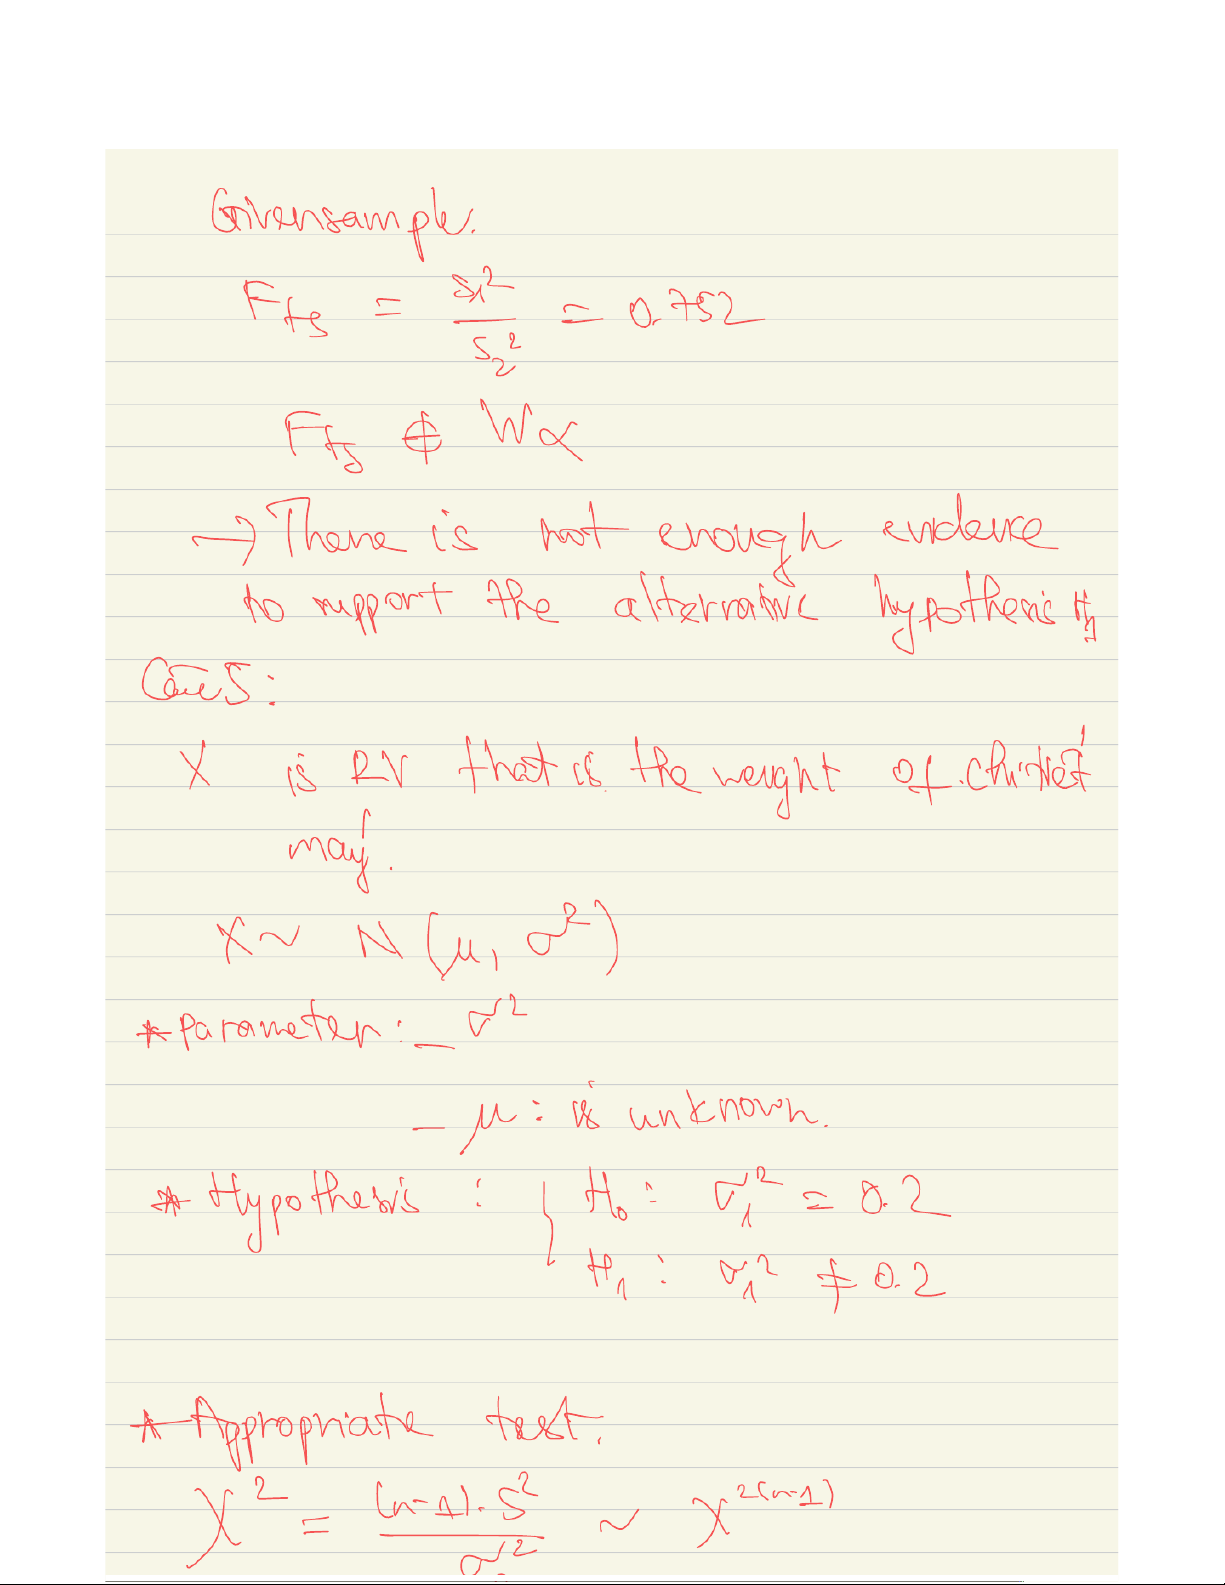 Given sample.
F_ts = s_1^2 / s_2^2 = 0.752
F_ts ∉ W_α
→ There is not enough evidence
to support the alternative hypothesis H_1
Case 5:
X is RV that is the weight of chi tiết
máy.
X ~ N(μ, σ^2)
* Parameter: – σ^2
– μ: is unknown.
* Hypothesis : { H_0: σ_1^2 = 0.2
H_1: σ_1^2 ≠ 0.2
* Appropriate test:
χ^2 = (n-1).S^2 / σ^2 ~ χ^2(n-1)